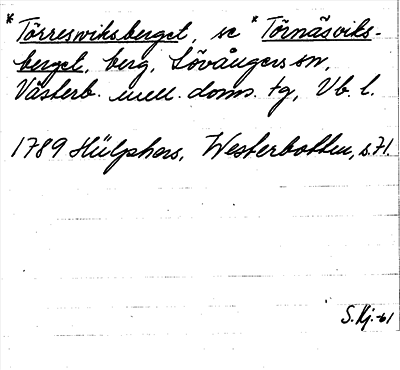 * Törreswiksberget, se * Törnäsviks-
berget, berg, Lövångers sn,
Västerb. mell. doms. tg, Vb. l.
1789 Hülphers, Westerbotten, s. 71.
S. Kj. -61